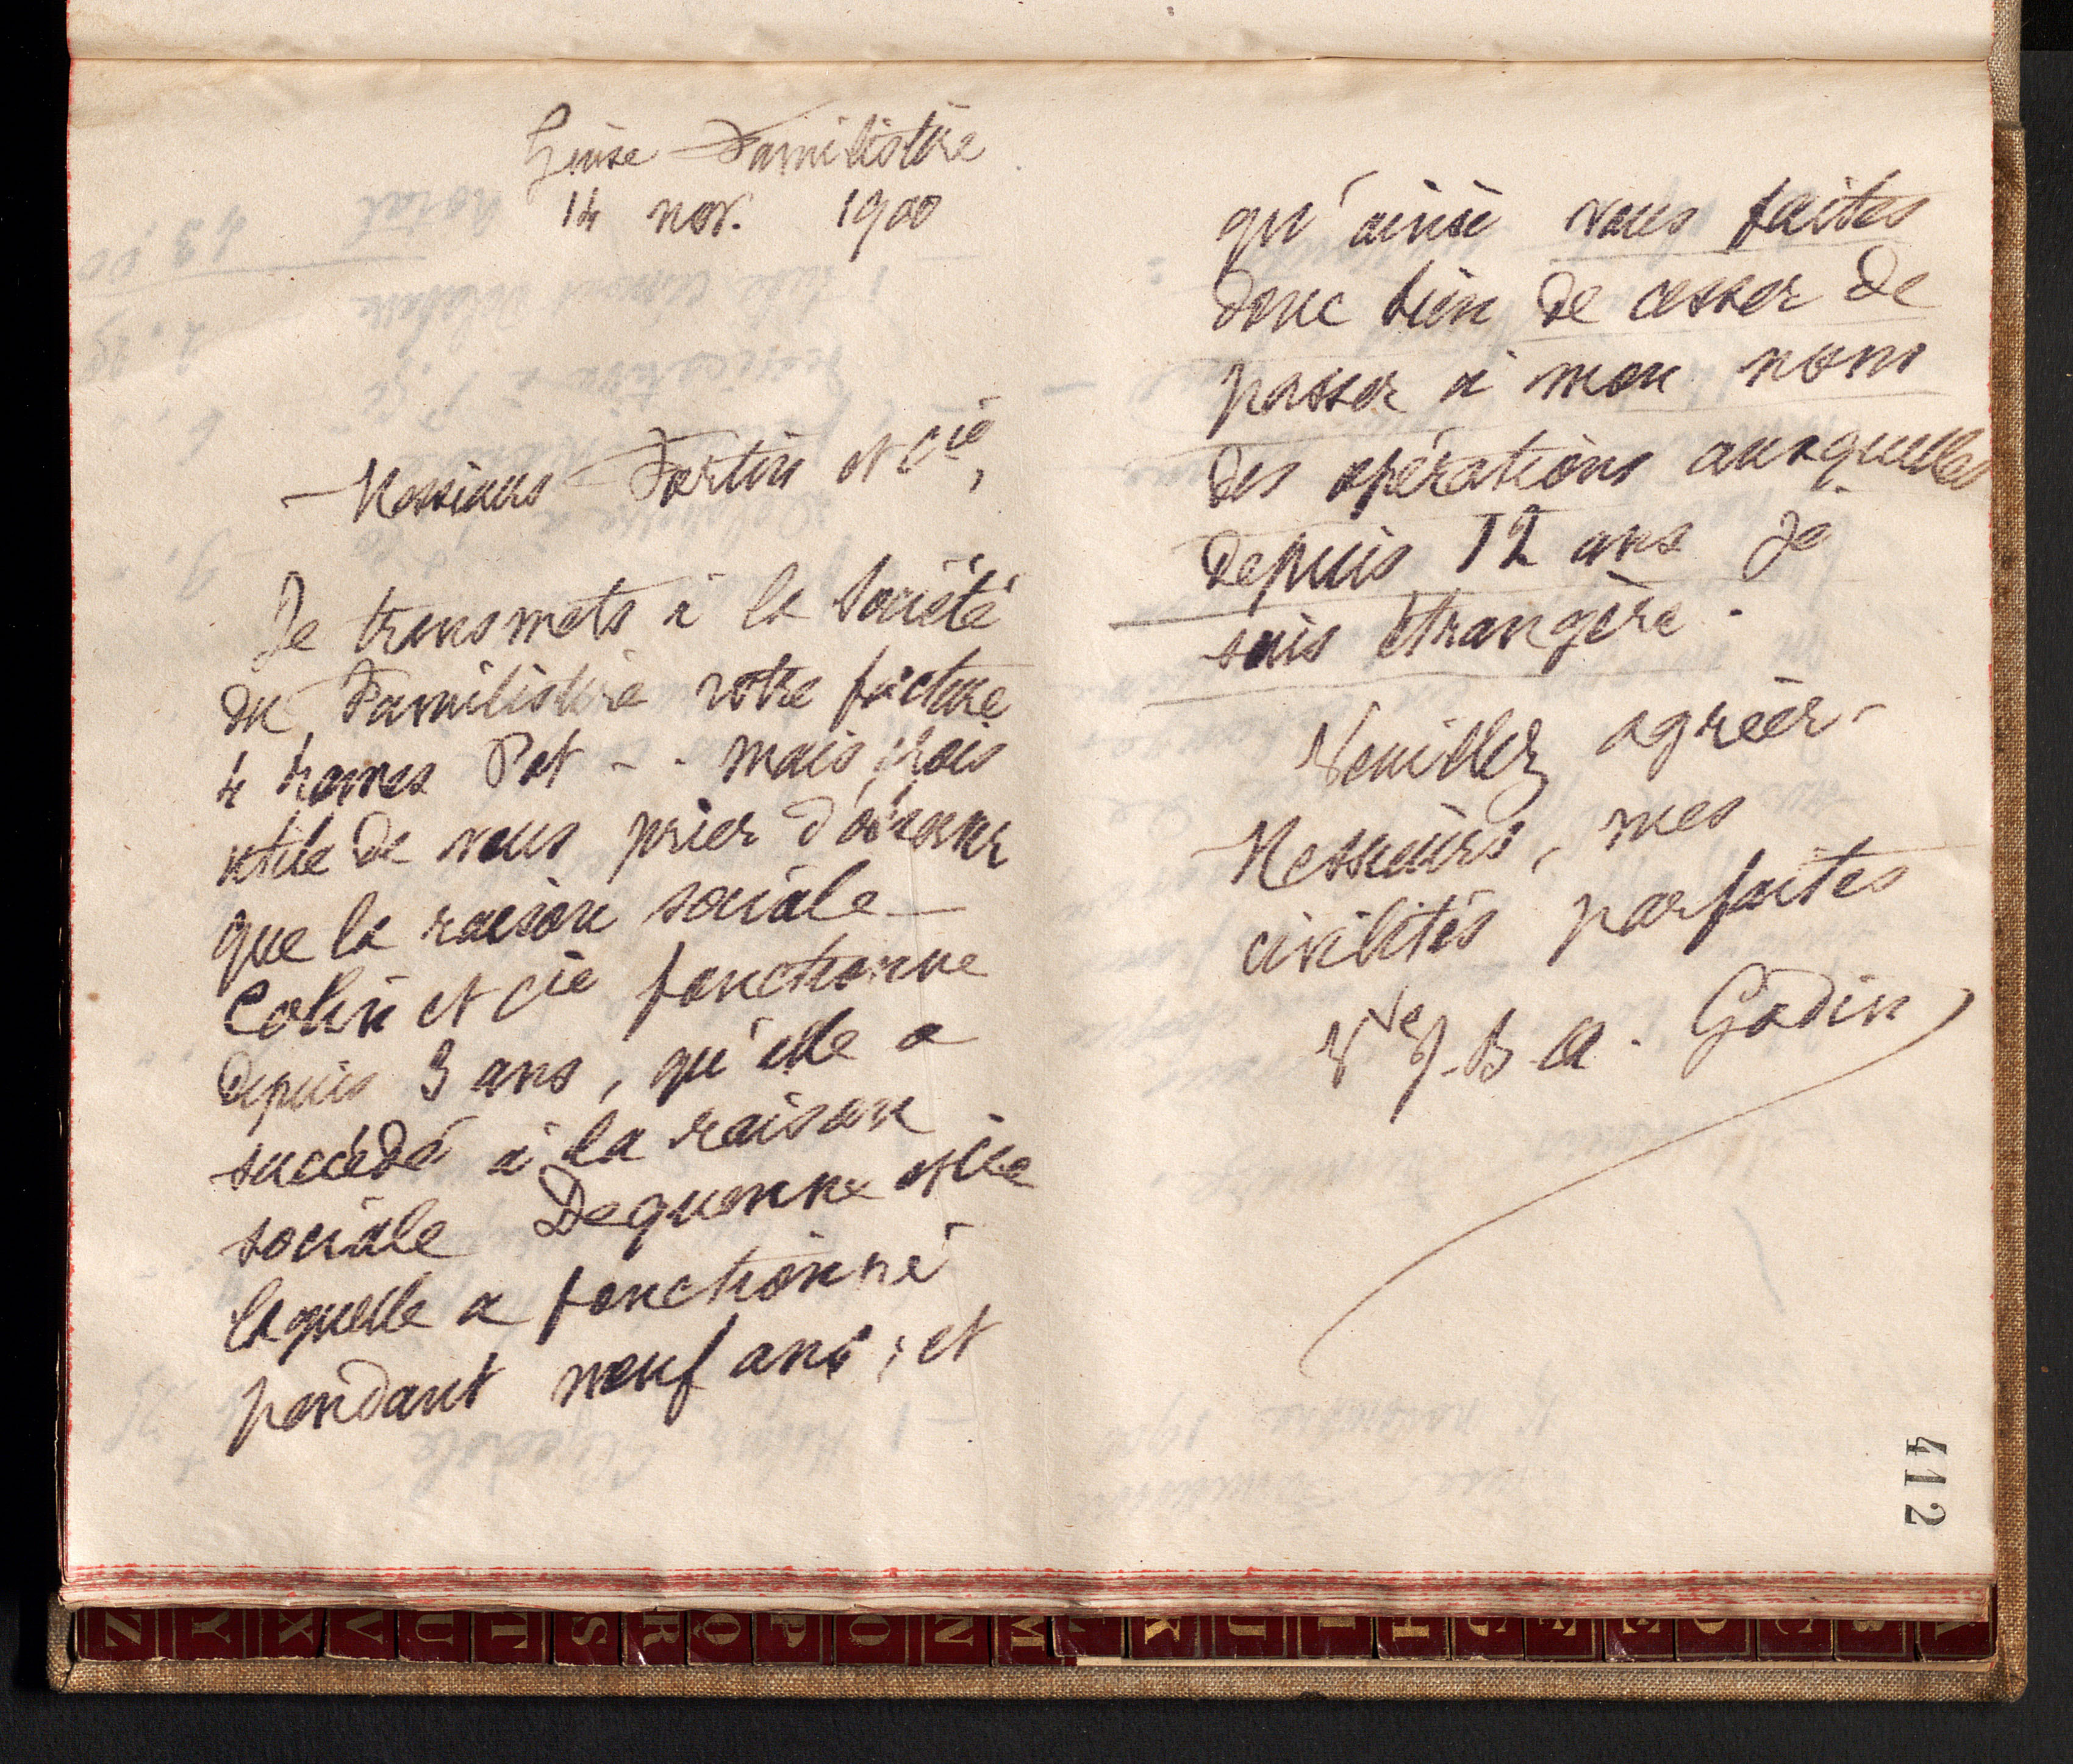 Guise Familistère
14 nov. 1900
Messieurs Fortin et Cie,
Je transmets à la Société
du Familistère votre facture
4 trames Pot - - mais, crois
utile de vous prier d'observer
que la raison sociale
Colin et Cie fonctionne
depuis 3 ans, qu'elle a
succédé à la raison
sociale Dequenne et Cie
laquelle a fonctionné
pendant neuf ans ; et
qu'ainsi vous faites
donc bien de cesser de
passer à mon nom
des opérations auxquelles
depuis 12 ans je
suis étrangère.
Veuillez agréer
Messieurs, mes
civilités parfaites
Vve J-B-A. Godin
412
Z Y X V U T S R Q P O N M K J I H G F E D C B A